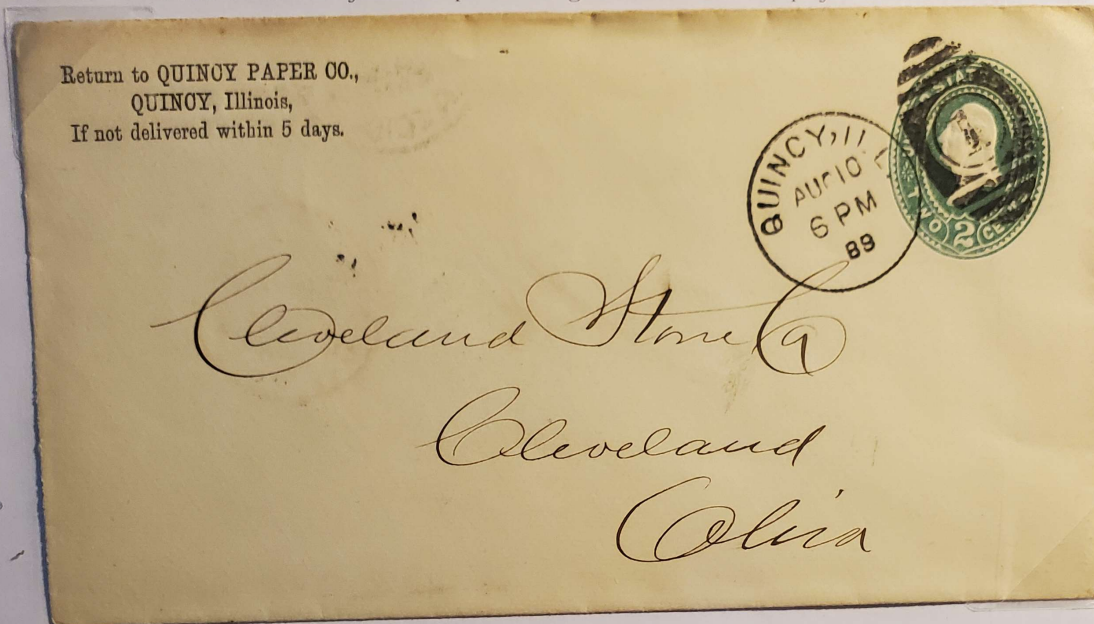 Return to QUINCY PAPER CO.,
QUINCY, Illinois,
If not delivered within 5 days.
QUINCY, ILL.
AUG 10
6 PM
89
STATES
TWO 2 CE
Cleveland Stone Co
Cleveland
Ohio